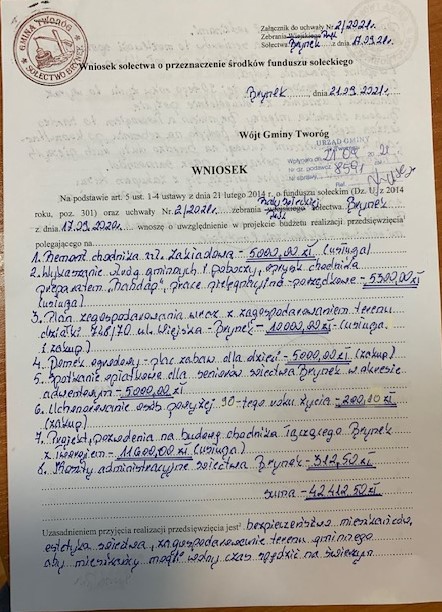 GMINA TWORÓG
SOŁECTWO BRYNEK
Załącznik do uchwały Nr 2/2021r.
Zebrania Wiejskiego
Sołectwa Brynek z dnia 17.09.2021r.
Wniosek sołectwa o przeznaczenie środków funduszu sołeckiego
Brynek, dnia 21.09.2021r.
Wójt Gminy Tworóg
URZĄD GMINY
Wpłynęło dn. 21.09. 20 21
Nr dz. podawcz. 8591
WNIOSEK
Na podstawie art. 5 ust. 1-4 ustawy z dnia 21 lutego 2014 r. o funduszu sołeckim (Dz. U. z 2014
Rady Sołeckiej
roku, poz. 301) oraz uchwały Nr 2/2021r. zebrania wiejskiego sołectwa Brynek
z dnia 17.09.2020r. wnoszę o uwzględnienie w projekcie budżetu realizacji przedsięwzięcia
polegającego na
1. Remont chodnika ul. Zakładowa - 5000,00 zł (usługa)
2. Wykaszanie dróg gminnych i poboczy, oprysk chodnika
preparatem, prace pielęgnacyjno - porządkowe - 5300,00 zł
(usługa)
3. Plan zagospodarowania wraz z zagospodarowaniem terenu
działki 748/70 ul. Wiejska - Brynek - 10000,00 zł (usługa
i zakup)
4. Domek ogrodowy - plac zabaw dla dzieci - 5000,00 zł (zakup)
5. Spotkanie opłatkowe dla seniorów sołectwa Brynek w okresie
adwentowym - 5000,00 zł
6. Uhonorowanie osób powyżej 90-tego roku życia - 200,00 zł
(zakup)
7. Projekt, pozwolenia na budowę chodnika łączącego Brynek
z Tworogiem - 11600,00 zł (usługa)
8. Koszty administracyjne sołectwa Brynek - 312,50 zł
suma - 42412,50 zł
Uzasadnieniem przyjęcia realizacji przedsięwzięcia jest bezpieczeństwo mieszkańców,
estetyka sołectwa, zagospodarowanie terenu gminnego
aby mieszkańcy mogli wolny czas spędzić na świeżym